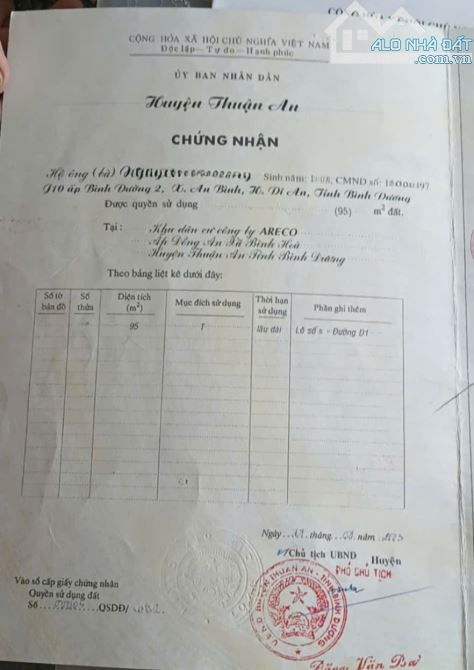 ALO NHÀ ĐẤT
.com.vn
CỘNG HÒA XÃ HỘI CHỦ NGHĨA VIỆT NAM
Độc lập — Tự do — Hạnh phúc
ỦY BAN NHÂN DÂN
Huyện Thuận An
CHỨNG NHẬN
Hộ ông (bà) Sinh năm: CMND số:
J10 ấp Bình Đường 2, X. An Bình, H. Dĩ An, Tỉnh Bình Dương
Được quyền sử dụng (95) m² đất.
Tại : Khu dân cư công ty ARECO
Ấp Đồng An Xã Bình Hoà
Huyện Thuận An Tỉnh Bình Dương
Theo bảng liệt kê dưới đây:
Số tờ bản đồ Số thửa Diện tích (m²) Mục đích sử dụng Thời hạn sử dụng Phần ghi thêm
95 T lâu dài Lô số - Đường D1
Ngày tháng 03 năm
Chủ tịch UBND , Huyện
PHÓ CHỦ TỊCH
Vào sổ cấp giấy chứng nhận
Quyền sử dụng đất
Số QSDĐ/
U.B.N.D HUYỆN THUẬN AN - TỈNH BÌNH DƯƠNG
Đặng Văn Ba